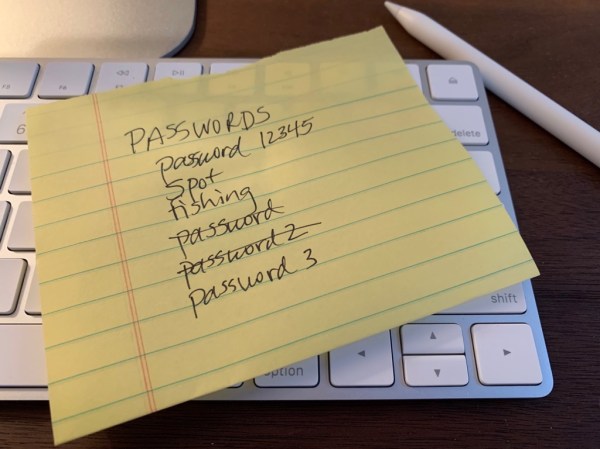 PASSWORDS
password 12345
Spot
fishing
password
password 2
password 3
6
delete
shift
option